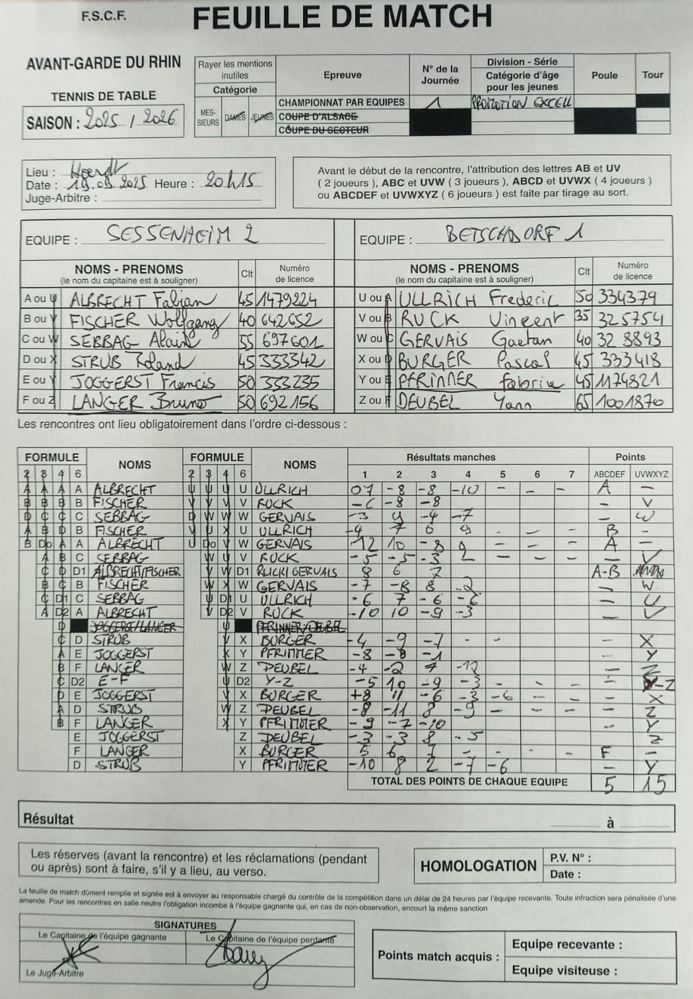 F.S.C.F. FEUILLE DE MATCH
AVANT-GARDE DU RHIN
TENNIS DE TABLE
SAISON : 2025 / 2026
Rayer les mentions inutiles
Catégorie
MES-SIEURS DAMES JEUNES
Epreuve
CHAMPIONNAT PAR EQUIPES
COUPE D'ALSACE
COUPE DU SECTEUR
N° de la Journée
1
Division - Série
Catégorie d'âge pour les jeunes
PROMOTION EXCELL
Poule
Tour
Lieu : Hoerdt
Date : 19.09.2025 Heure : 20h15
Juge-Arbitre :
Avant le début de la rencontre, l'attribution des lettres AB et UV
( 2 joueurs ), ABC et UVW ( 3 joueurs ), ABCD et UVWX ( 4 joueurs )
ou ABCDEF et UVWXYZ ( 6 joueurs ) est faite par tirage au sort.
EQUIPE : SESSENHEIM 2
EQUIPE : BETSCHDORF 1
NOMS - PRENOMS Clt Numéro de licence
(le nom du capitaine est à souligner)
A ou U ALBRECHT Fabian 45 1479224
B ou V FISCHER Wolfgang 40 642652
C ou W SEBBAG Alain 55 697601
D ou X STRUB Roland 45 333342
E ou Y JOGGERST Francis 50 333235
F ou Z LANGER Bruno 50 692156
NOMS - PRENOMS Clt Numéro de licence
(le nom du capitaine est à souligner)
U ou A ULLRICH Frederic 50 334379
V ou B RUCK Vincent 35 325754
W ou C GERVAIS Gaetan 40 328893
X ou D BURGER Pascal 45 333418
Y ou E PFRIMMER Fabrice 45 1124821
Z ou F DEUBEL Yann 65 1001870
Les rencontres ont lieu obligatoirement dans l'ordre ci-dessous :
FORMULE NOMS FORMULE NOMS Résultats manches Points
2 3 4 6 2 3 4 6 1 2 3 4 5 6 7 ABCDEF UVWXYZ
A ALBRECHT U ULLRICH 07 -8 -8 -10 - - - A -
B FISCHER V RUCK -6 -8 -8 - V
C SEBBAG W GERVAIS -3 9 -4 -7 - W
B FISCHER U ULLRICH -4 7 6 9 B -
A ALBRECHT W GERVAIS 12 10 -8 9 - - - A -
C SEBBAG V RUCK -5 -5 -3 2 - - - - V
D1 ALBRECHT/FISCHER D1 RUCK GERVAIS 8 6 7 A-B
B FISCHER W GERVAIS -7 -8 8 -2 - W
C SEBBAG U ULLRICH -6 7 -6 -6 - U
A ALBRECHT V RUCK -10 10 -9 -3 - V
JOGGERST/LANGER PFRIMMER/DEUBEL
D STRUB X BURGER -4 -9 -7 - - - X
E JOGGERST Y PFRIMMER -8 -8 -1 - Y
F LANGER Z DEUBEL -4 -2 7 -12 - Z
D2 E-F D2 Y-Z -5 10 -9 -3 - - - - Y-Z
E JOGGERST X BURGER +8 11 -6 -3 -6 - - - X
D STRUB Z DEUBEL -8 -11 8 -9 - - - - Z
F LANGER Y PFRIMMER -9 -7 -10 - Y
E JOGGERST Z DEUBEL -3 -3 8 -5 Z
F LANGER X BURGER 5 6 7 - - - - F -
D STRUB Y PFRIMMER -10 8 2 -7 -6 - Y
TOTAL DES POINTS DE CHAQUE EQUIPE 5 15
Résultat à
Les réserves (avant la rencontre) et les réclamations (pendant
ou après) sont à faire, s'il y a lieu, au verso.
HOMOLOGATION P.V. N° :
Date :
La feuille de match dûment remplie et signée est à envoyer au responsable chargé du contrôle de la compétition dans un délai de 24 heures par l'équipe recevante. Toute infraction sera pénalisée d'une
amende. Pour les rencontres en salle neutre l'obligation incombe à l'équipe gagnante qui, en cas de non-observation, encourt la même sanction
SIGNATURES
Le Capitaine de l'équipe gagnante Le Capitaine de l'équipe perdante
Le Juge-Arbitre
Points match acquis : Equipe recevante :
Equipe visiteuse :